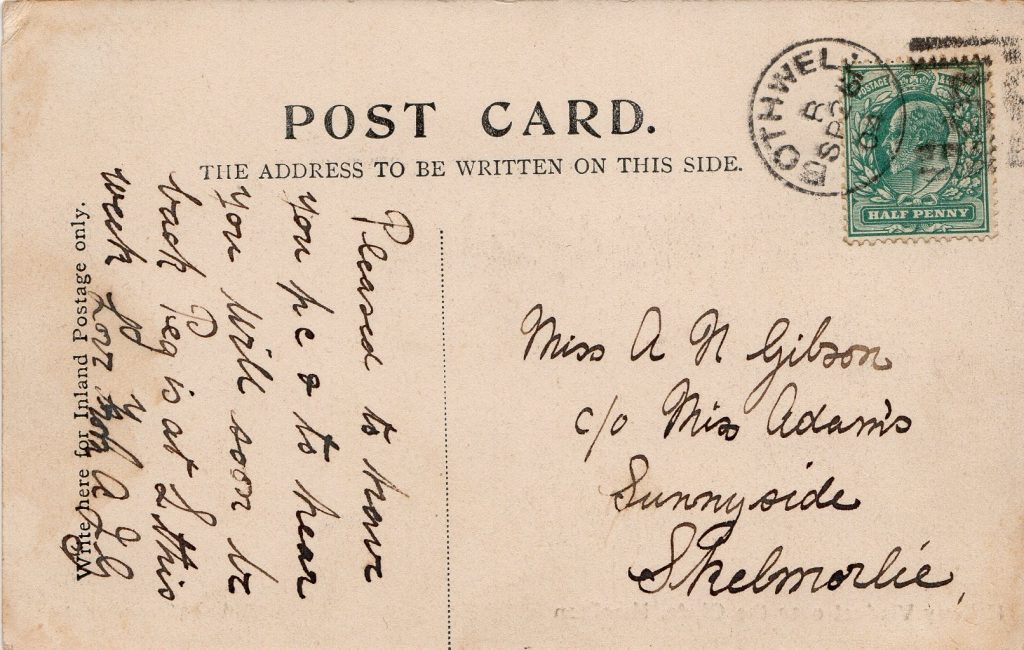 POST CARD.
THE ADDRESS TO BE WRITTEN ON THIS SIDE.
BOTHWELL
R
SP 26
03
POSTAGE
HALF PENNY
Write here for Inland Postage only.
Pleased to have
you pc & to hear
you will soon be
back Peg is at L this
week
Miss A N Gibson
c/o Miss Adam's
Sunnyside
Skelmorlie,